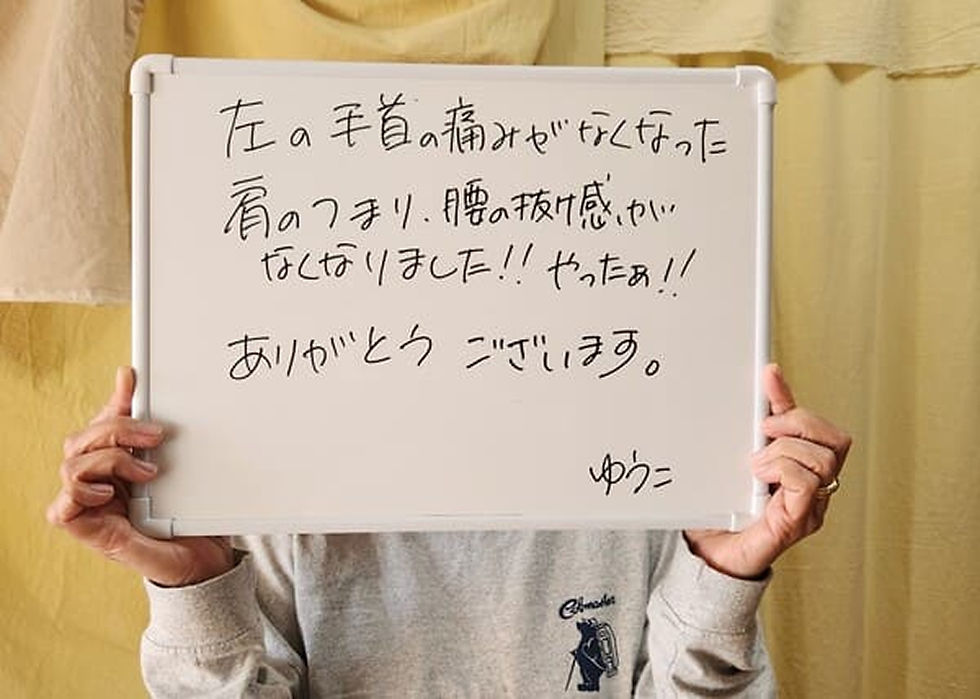 左の手首の痛みがなくなった
肩のつまり、腰の抜け感、が
なくなりました!! やったぁ!!
ありがとうございます。
ゆうこ